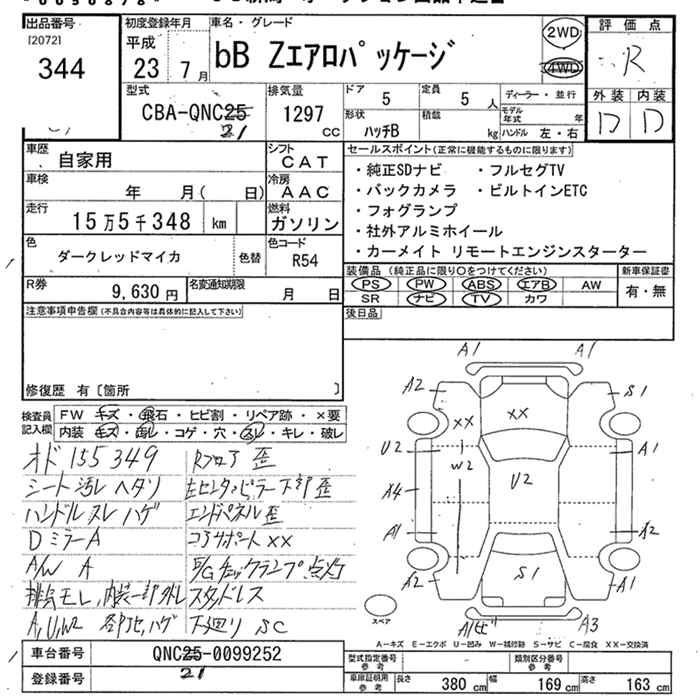 出品番号
[20721
344
初度登録年月
平成
23 7月
車名・グレード
bB Zエアロパッケージ
2WD
4WD
評価点
R
外装 内装
D D
型式
CBA-QNC25
21
排気量
1297
cc
ドア
5
定員
5人
形状
ハッチB
積載
kg
ディーラー・並行
モデル年式 年
ハンドル 左・右
車歴
自家用
シフト
CAT
車検
年 月( 日)
冷房
AAC
走行
15万5千348 km
燃料
ガソリン
色
ダークレッドマイカ
色替
色コード
R54
R券
9,630円
名変通知期限
月 日
セールスポイント(正常に機能するものに限ります)
・純正SDナビ ・フルセグTV
・バックカメラ ・ビルトインETC
・フォグランプ
・社外アルミホイール
・カーメイト リモートエンジンスターター
装備品(純正品に限り○をつけてください)
PS PW ABS エアB AW
SR ナビ TV カワ
新車保証書
有・無
後日品
注意事項申告欄(不具合内容等は具体的に記入して下さい)
修復歴 有〔箇所 〕
検査員記入欄
FW キズ・飛石・ヒビ割・リペア跡・×要
内装 キズ・汚レ・コゲ・穴・スレ・キレ・破レ
オド155349
シート汚レ ヘタリ
ハンドルスレ ハゲ
DミラーA
A/W A
排気モレ,内装一部外レ
A,U,W2 各部凹,ハゲ
Rフロア 歪
左センターピラー下部 歪
エンドパネル歪
コアサポート××
E/Gチェックランプ点灯
スタッドレス
下廻り SC
A1 A1
A2 S1
XX XX
U2 W2 A1
A4 U2
A1 A2
A2 S1 A2
スペア
A1ヒビ A3
A-キズ E-エクボ U-凹み W-補修跡 S-サビ C-腐食 XX-交換済
車台番号
QNC25-0099252
21
登録番号
型式指定番号
参考
類別区分番号
参考
車庫証明用
参考
長さ 380cm
幅 169cm
高さ 163cm